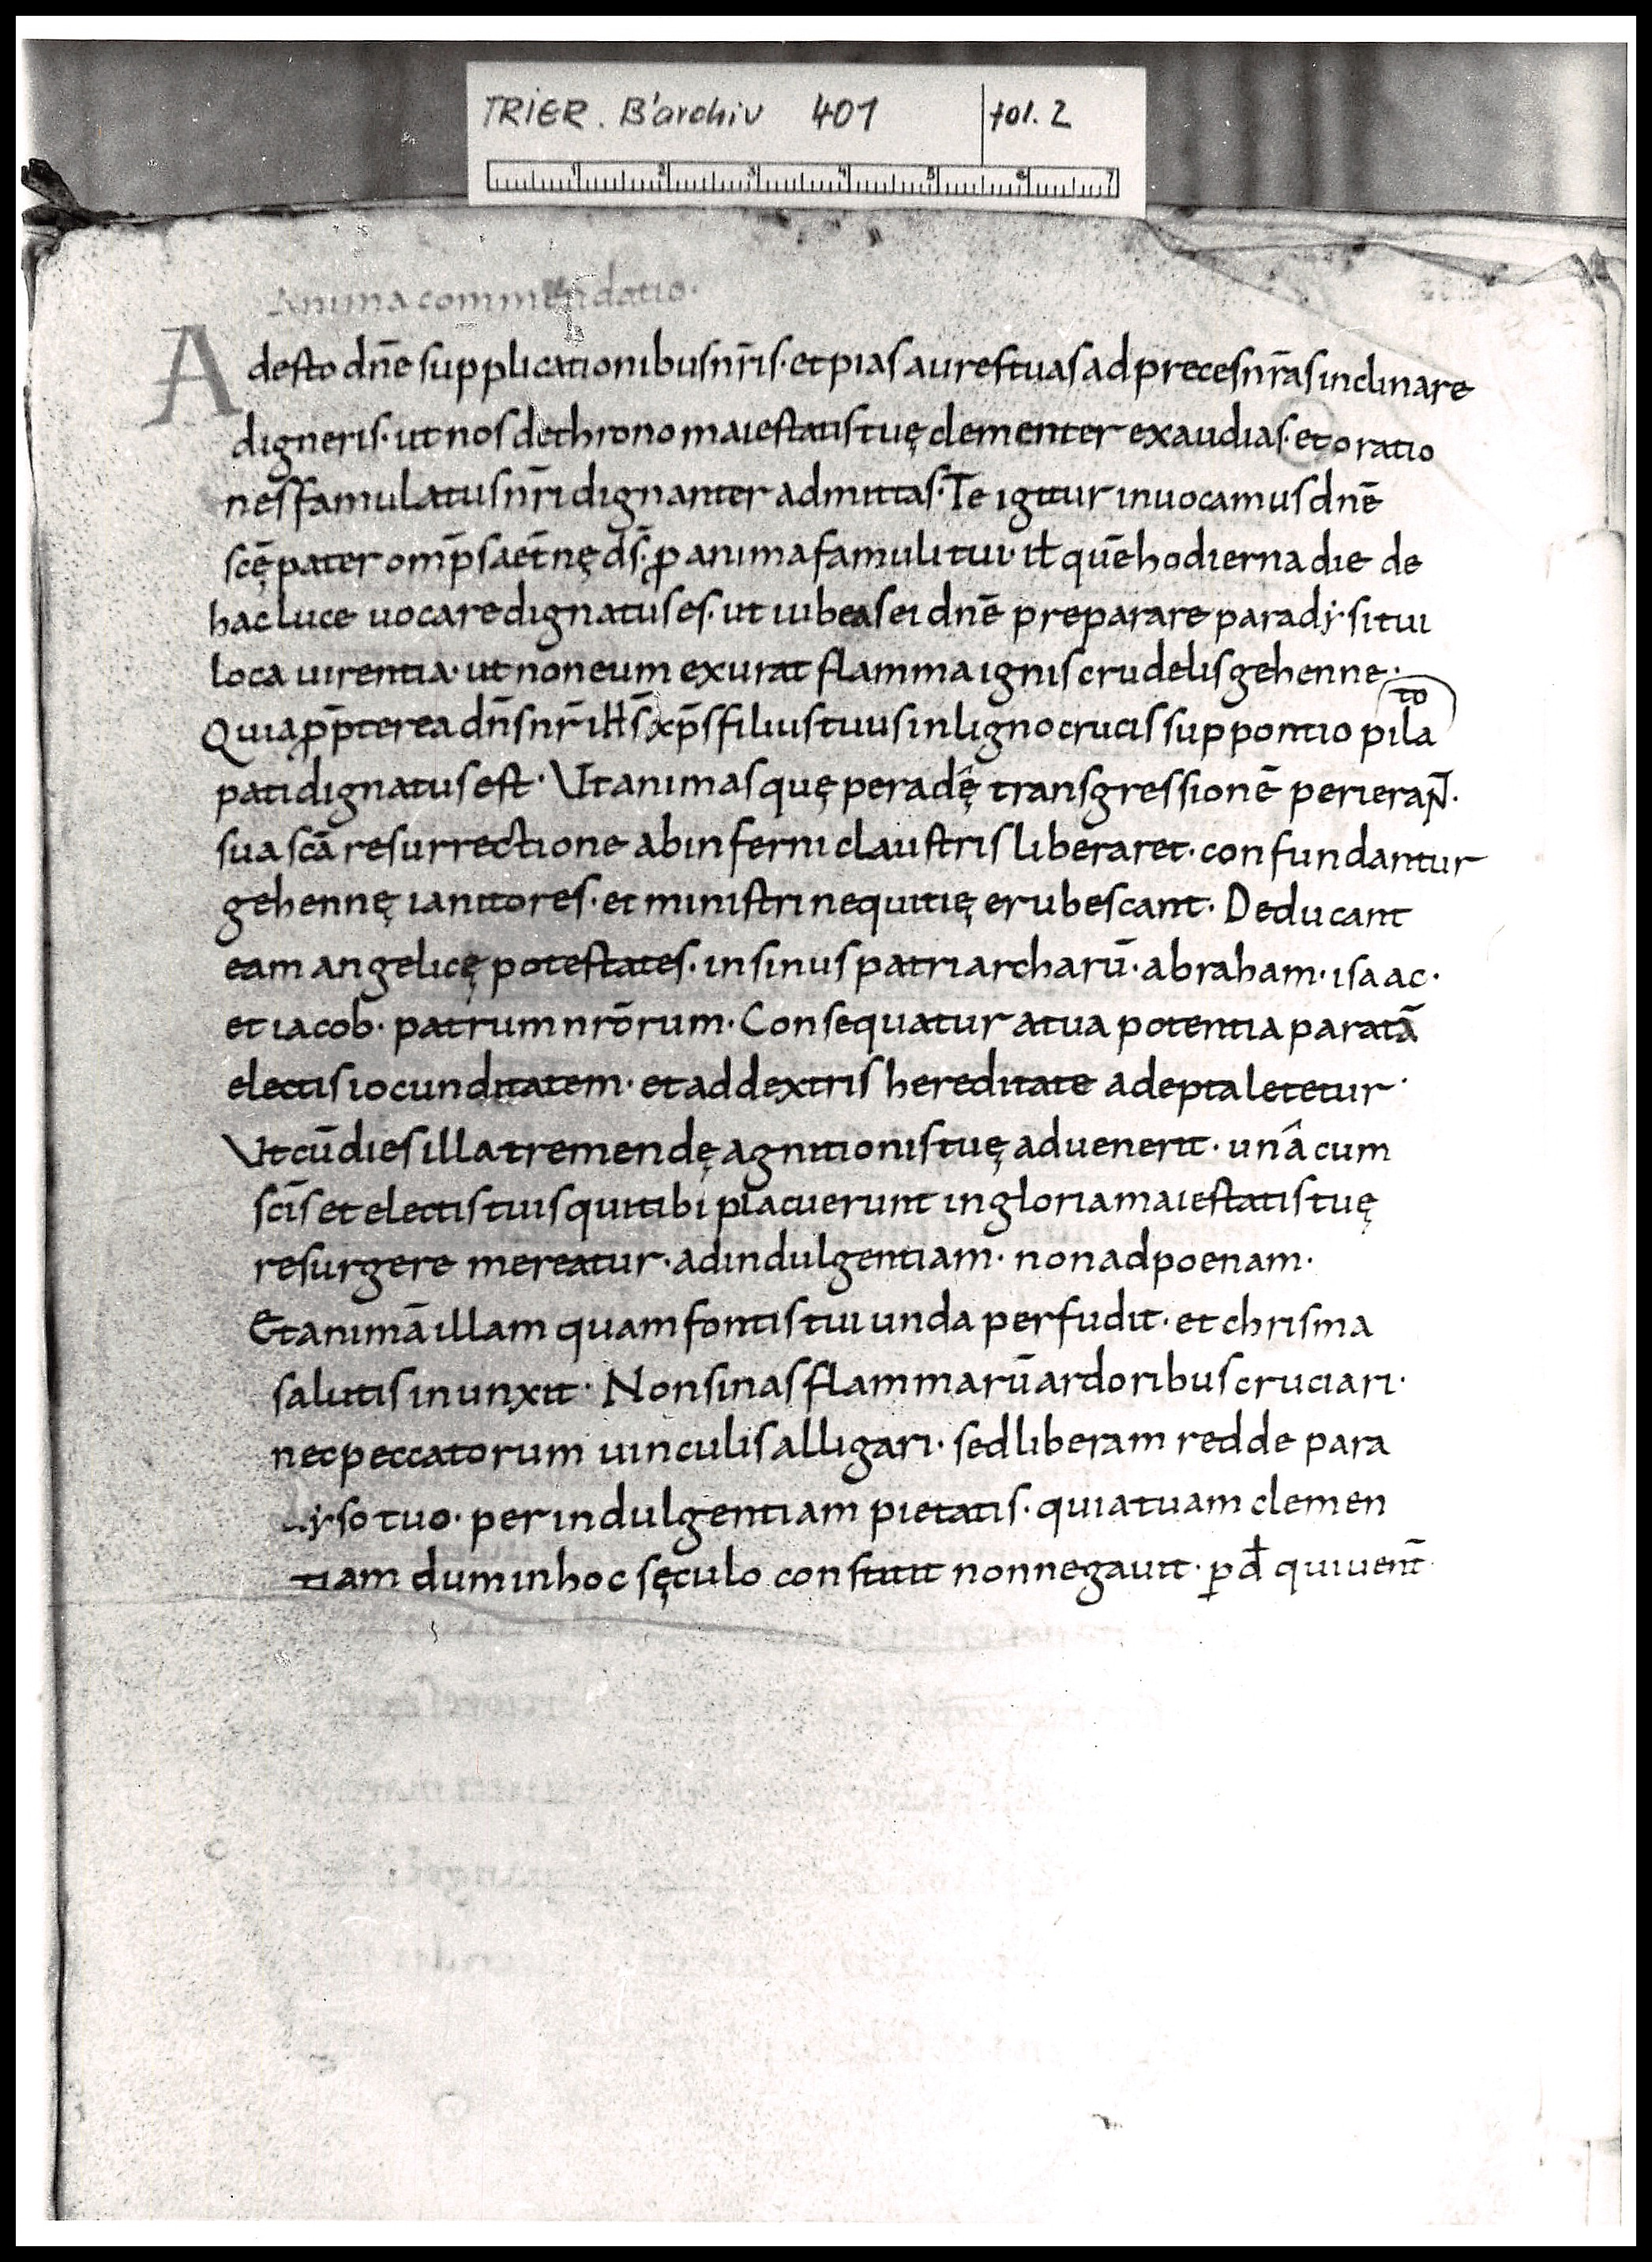 TRIER. B'archiv 401 fol. 2
1 2 3 4 5 6 7
Anima commendatio.
Adesto dn̄e supplicationibus nr̄is· et pias aures tuas ad preces nr̄as inclinare
digneris· ut nos de throno maiestatis tuę clementer exaudias· et oratio
nes famulatus nr̄i dignanter admittas· Te igitur inuocamus dnē
scę̄ pater omp̄s aet̄nę d̄s· ꝓ anima famuli tui· iƚƚ quē hodierna die de
hac luce uocare dignatus es· ut iubeas ei dnē preparare parady·si tui
loca uirentia· ut non eum exurat flamma ignis crudelis gehenne·
Quia ꝓp̄terea dn̄s nr̄ ihs̄ xp̄s filius tuus in ligno crucis sup pontio pila
to
pati dignatus est· Ut animas quę per adę̂ transgressionē perieraN̄·
sua scā resurrectione ab inferni claustris liberaret· confundantur
gehennę ianitores· et ministri nequitię erubescant· Deducant
eam angelicę potestates· in sinus patriarcharū· abraham· isaac·
et iacob· patrum nrōrum· Consequatur a tua potentia paratā
electis iocunditatem· et ad dextris hereditate adepta letetur·
Ut cū dies illa tremendę agnitionis tuę aduenerit· unâ cum
scīs et electis tuis qui tibi placuerunt in gloria maiestatis tuę
resurgere mereatur· ad indulgentiam· non ad poenam·
Et animā illam quam fontis tui unda perfudit· et chrisma
salutis inunxit· Non sinas flammarū ardoribus cruciari·
nec peccatorum uinculis alligari· sed liberam redde para
dyso tuo· per indulgentiam pietatis· quia tuam clemen
tiam dum in hoc sęculo constitit non negauit· p đ qui uent̄